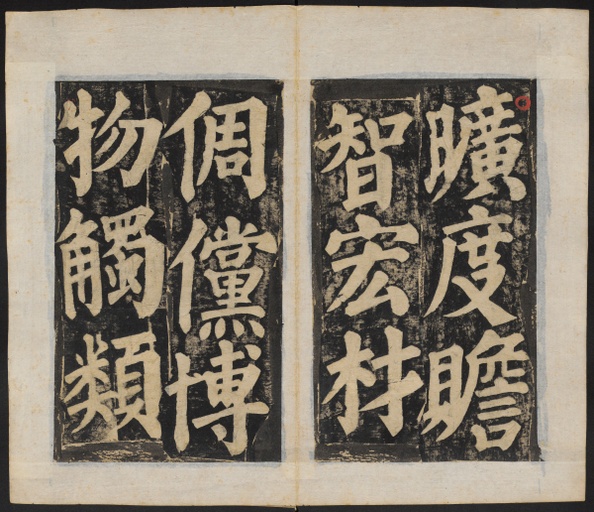 曠度瞻
智宏材
倜儻博
物觸類